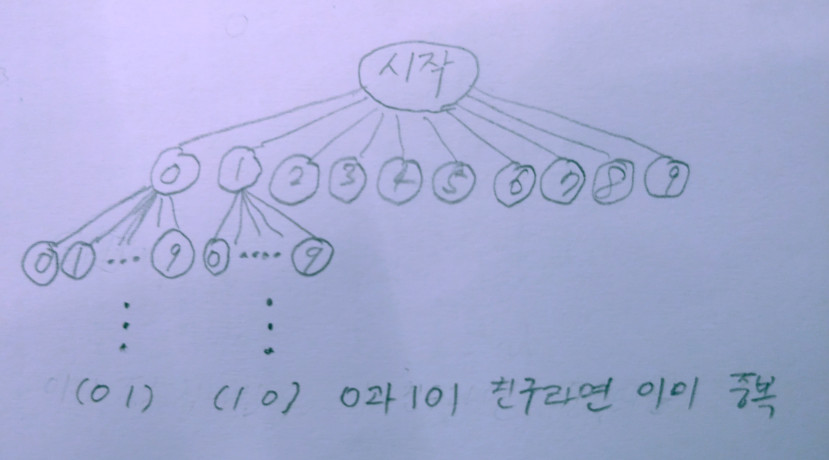 시작
0 1 2 3 4 5 6 7 8 9
0 1 ... 9 0 .... 9
(0 1) (1 0) 0과 1이 친구라면 이미 중복